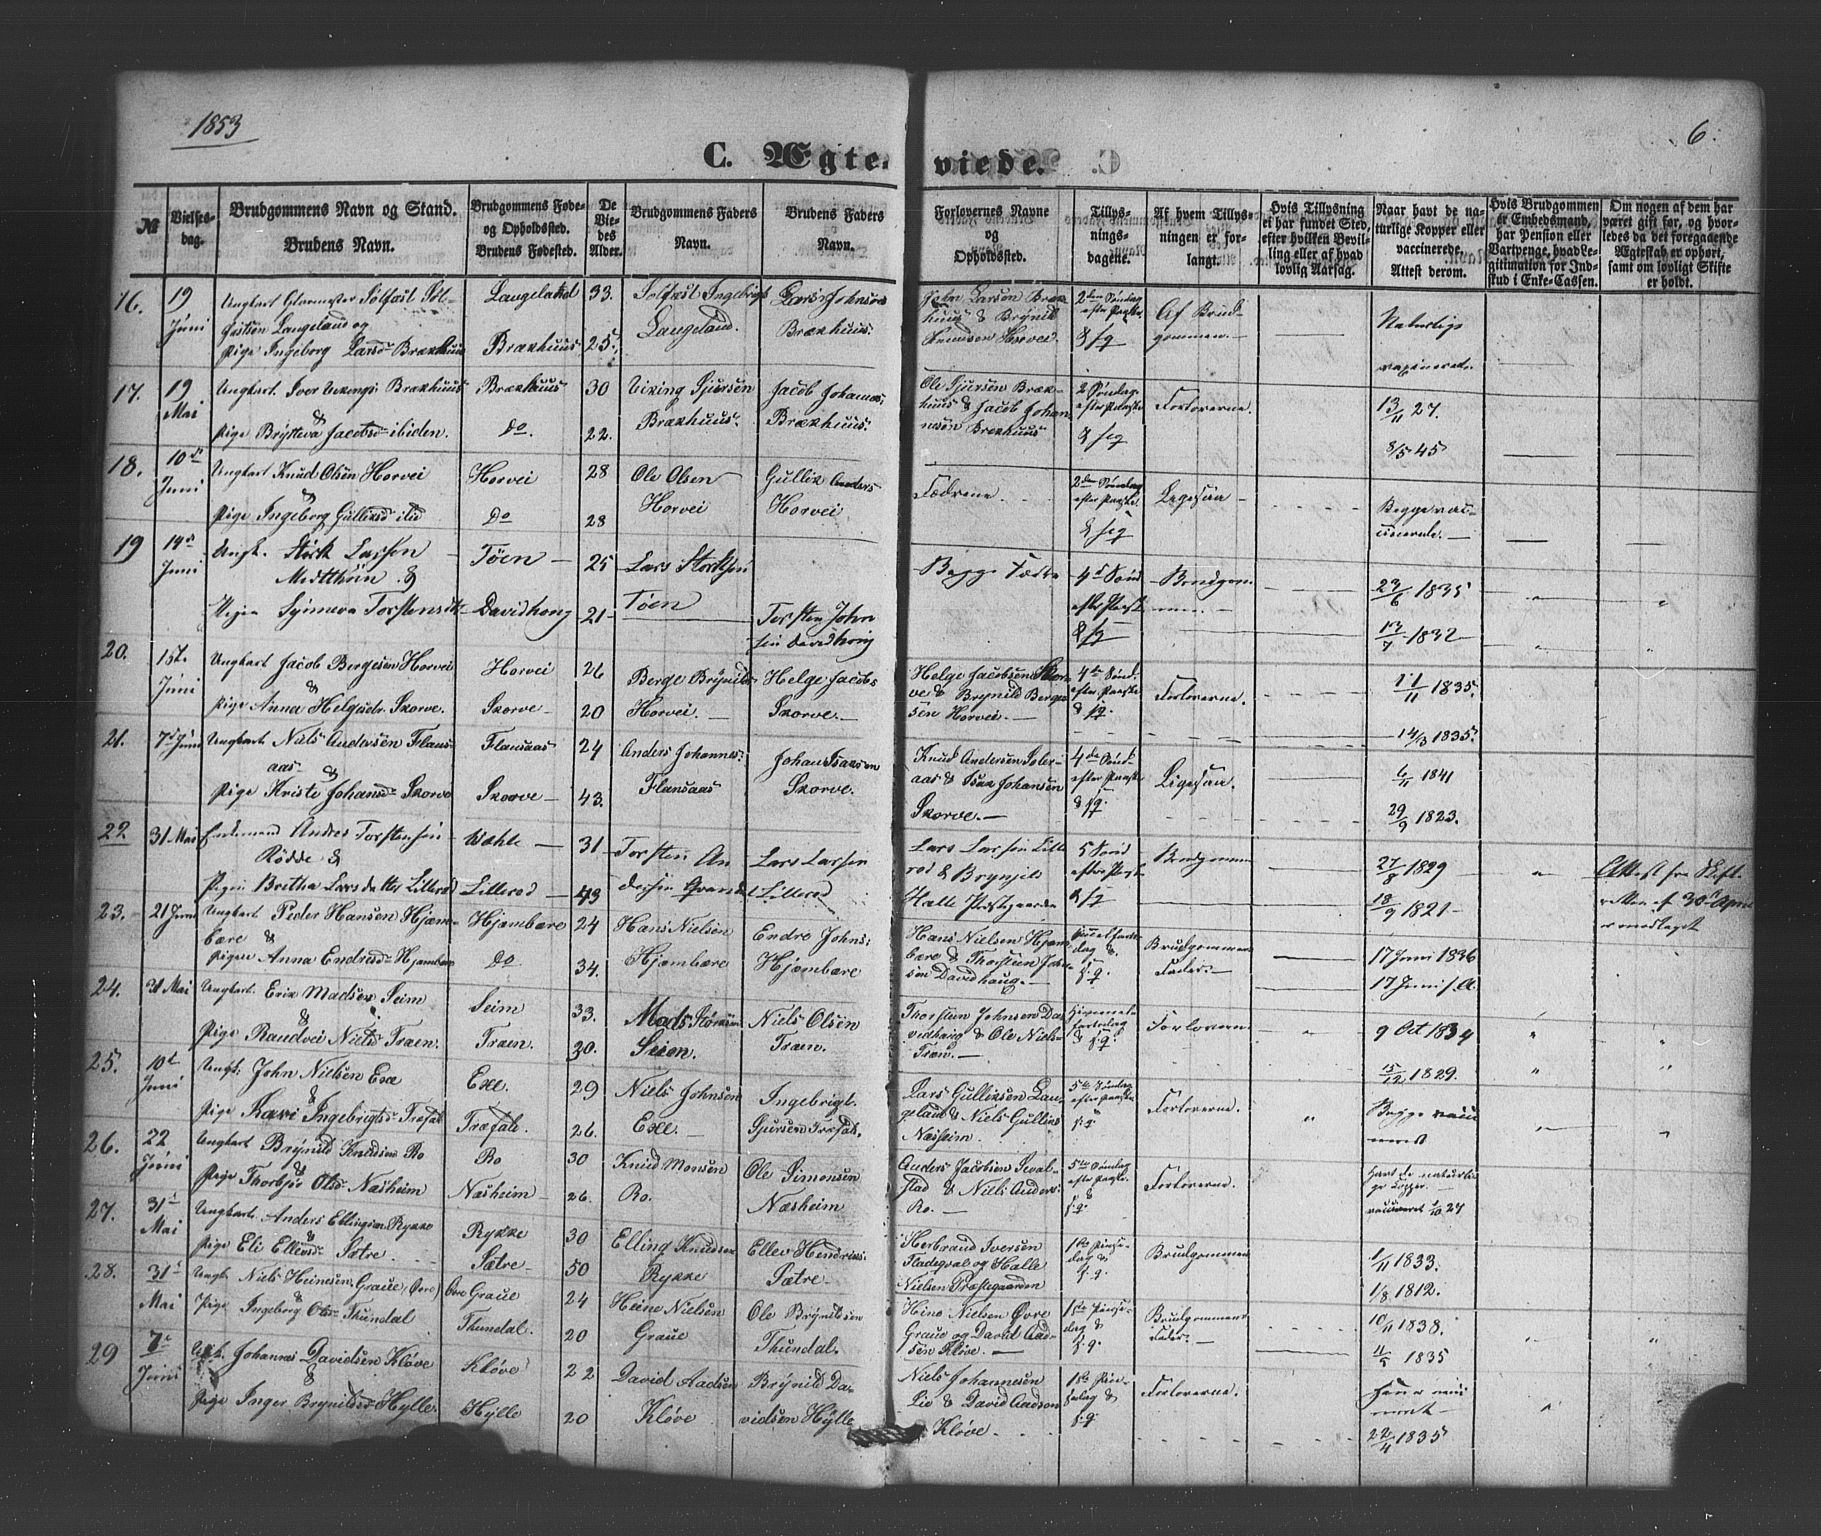 1853
6.
C. Ægte-
viede.
№
Vielses-
dag.
Brudgommens Navn og Stand.
Brudens Navn.
Brudgommens Føde-
og Opholdsted.
Brudens Fødested.
De
Vie-
des
Alder.
Brudgommens Faders
Navn.
Brudens Faders
Navn.
Forlovernes Navne
og
Opholdsted.
Tillys-
nings-
dagene.
Af hvem Tillys-
ningen er for-
langt.
Hvis Tillysning
ei har fundet Sted,
efter hvilken Bevil-
ling eller af hvad
lovlig Aarsag.
Naar havt de na-
turlige Kopper eller
vaccinerede.
Attest derom.
Hvis Brudgommen
er Embedsmand,
har Pension eller
Vartpenge, hvad Le-
gitimation for Ind-
skud i Enke-Cassen.
Om nogen af dem har
været gift før, og hvor-
ledes da det foregaaende
Ægteskab er ophørt,
samt om lovligt Skifte
er holdt.
16.
19
Juni
Ungkarl Solfæst Sol-
Langeland og
Pige Ingeborg Larsd: Brækhuus
Langeland 33.
Brækhuus 25.
Solfæst Ingebrigts
Langeland.
Lars Johnsøn
Brækhuus.
John Larsøn Bræk-
huus & Brynild
Knudsøn Horvei
2den Søndag
efter Paaske
& fg
Af Brud-
gommen.
Naturlige
17.
19
Mai
Ungkarl. Iver Vikings: Brækhuus
&
Pige Brytteva Jacobsd: ibiden.
Brækhuus 30
Do. 22.
Viking Sjursén
Brækhuus.
Jacob Johannes
Brækhuus.
Ole Sjursén Bræk-
huus & Jacob Johan-
nesøn Brækhuus
2 Søndag
efter Paaske
& fg
Forloverne.
13/11 27.
8/5 45
18.
10de
Juni
Ungkarl Knud Olsén Horvei
&
Pige Ingeborg Gulliksd ibid
Horvei 28
Do 28
Ole Olsen
Horvei
Gullik Anders-
Horvei
Fædrene
2den Søndag
efter Paaske
& fg
Ligesaa
Begge vac-
cinerede.
19
14de
Juni
Ungk. Størk Larsen
&
Pigen Synneva Torstensd:
Tøen 25
Davidhoug 21
Lars Størksen
Tøen
Torsten John
sen Davidhoug
Begge Fædre
4de Sønd
efter Paask
& fg
Brudgom-
men.
23/6 1835
13/7 1832
20.
15de
Juni
Ungkarl Jacob Bergesen Horvei
&
Pige Anna Helgesdr. Skorve.
Horvei 26
Skorve 20
Berge Brynilds
Horvei.
Helge Jacobs
Skorve.
Helge Jacobsen Skor-
ve & Brynild Berge-
sén Horvei.
4de Sønd:
efter Paaske
& fg.
Forloverne.
11/11 1835.
14/3 1835.
21.
7de Juni
Ungkarl Niels Andersén Flans-
aas &
Pige Kristi Johansd: Skorve
Flansaas 24
Skorve 43.
Anders Johannes:
Flansaas
Johan Isaksén
Skorve.
Knud Andersén Soler-
aas & Isak Johansén
Skorve.
4de Sønd:
efter Paaske
& fg.
Ligesaa
6/11 1841
29/9 1823.
22
31 Mai
Enkemand Andres Torstensen
Rødde &
Pigen Bretha Larsdatter Lillerød
31
Lillerød 43
Torsten An
dersen
Lars Larsen
Lillerød
Lars Larsen Lille
rød & Brynjel
Halle Præstgaarde
5 Sønd
efter Paask
& fg
Brudgommen
27/8 1829
18/9 1821
Attest fra Skift-
retten af 30 April
er modtaget
23.
21 Juni
Ungkarl Peder Hansen Hjøm-
bære &
Pigen Anna Endresd: Hjømbære
Hjømbære 24
Do 34.
Hans Nielsén
Hjømbære
Endre Johns:
Hjømbære
Hans Nielsen Hjøm-
bære & Thorstien John-
sén Davidhaug.
dag &
f. g.
Brudgommens
Fader.
17 Juni 1836
17 Juni s. A.
24.
31 Mai
Ungkarl. Erik Madsén Seim
&
Pige Randvei Nielsd: Træen.
Seim 33.
Træen. 30.
Mads
Seim.
Niels Olsén
Træen.
Thorstein Johnsén Da-
vidhaug & Ole Niels-
Træn.
fartsdag
& f. g.
Forloverne
9 Oct 1834
15/12 1829.
25.
10de
Juni
Ungk: John Nielsén Exe
&
Pige Kari Ingebrigts: Træfal
Exe. 29
Træfal. 26.
Niels Johnsén
Exe.
Ingebrigt
Sjursén Træfal.
Lars Gulliksén Lan-
geland & Niels Gulliks
Næsheim.
5te Søndag
efter Paaske
f. g.
Forloverne.
Begge vacci
neret
26.
22
Juni
Ungkarl Brynild Knudsen Ro
&
Pige Thorbjør Olsd: Næsheim
Ro 30
Næsheim 26.
Knud Monsén
Ro.
Ole Simonsén
Næsheim
Anders Jacobsén Seval-
stad & Niels Anders:
Ro.
5te Søndag
efter Paaske
f. g.
Forloverne.
Havt de naturli-
ge Kopper.
27.
31te
Mai
Ungkarl. Anders Ellingsen Rykke
&
Pige Eli Ellevsd: Sætre.
Rykke 30
Sætre 50
Elling Knudsen
Rykke
Ellev Hendriks:
Sætre
Herbrand Iversén
Fladegval og Halle
Nielsén Præstegaarden
1ste Pinse-
dag &
f. g.
Brudgommen
1/11 1833.
1/8 1812.
28.
31te
Mai
Ungk. Niels Heinesén Graue (Øvre)
&
Pige Ingeborg Olsd: Thundal
Øvre Graue 24
Thundal. 20
Heine Nielsén
Graue
Ole Brynildsén
Thundal.
Heine Nielsén Øvre
Graue og David Aad-
sén Kløve.
1ste Pinse-
dag &
f. g.
Brudgommens
Fader.
10/11 1838.
11/5 1835
29
7de
Juni
Ungk. Johannes Davidsén Kløve
&
Pige Inger Brynildsd: Hylle.
Kløve 22
Hylle 20
David Aadsén
Kløve
Brynild Da-
vidsén Hylle
Niels Johannesén
Lie & David Aadsén
Kløve
1ste Pin-
sedag &
f. g.
Forloverne.
22/4 1835